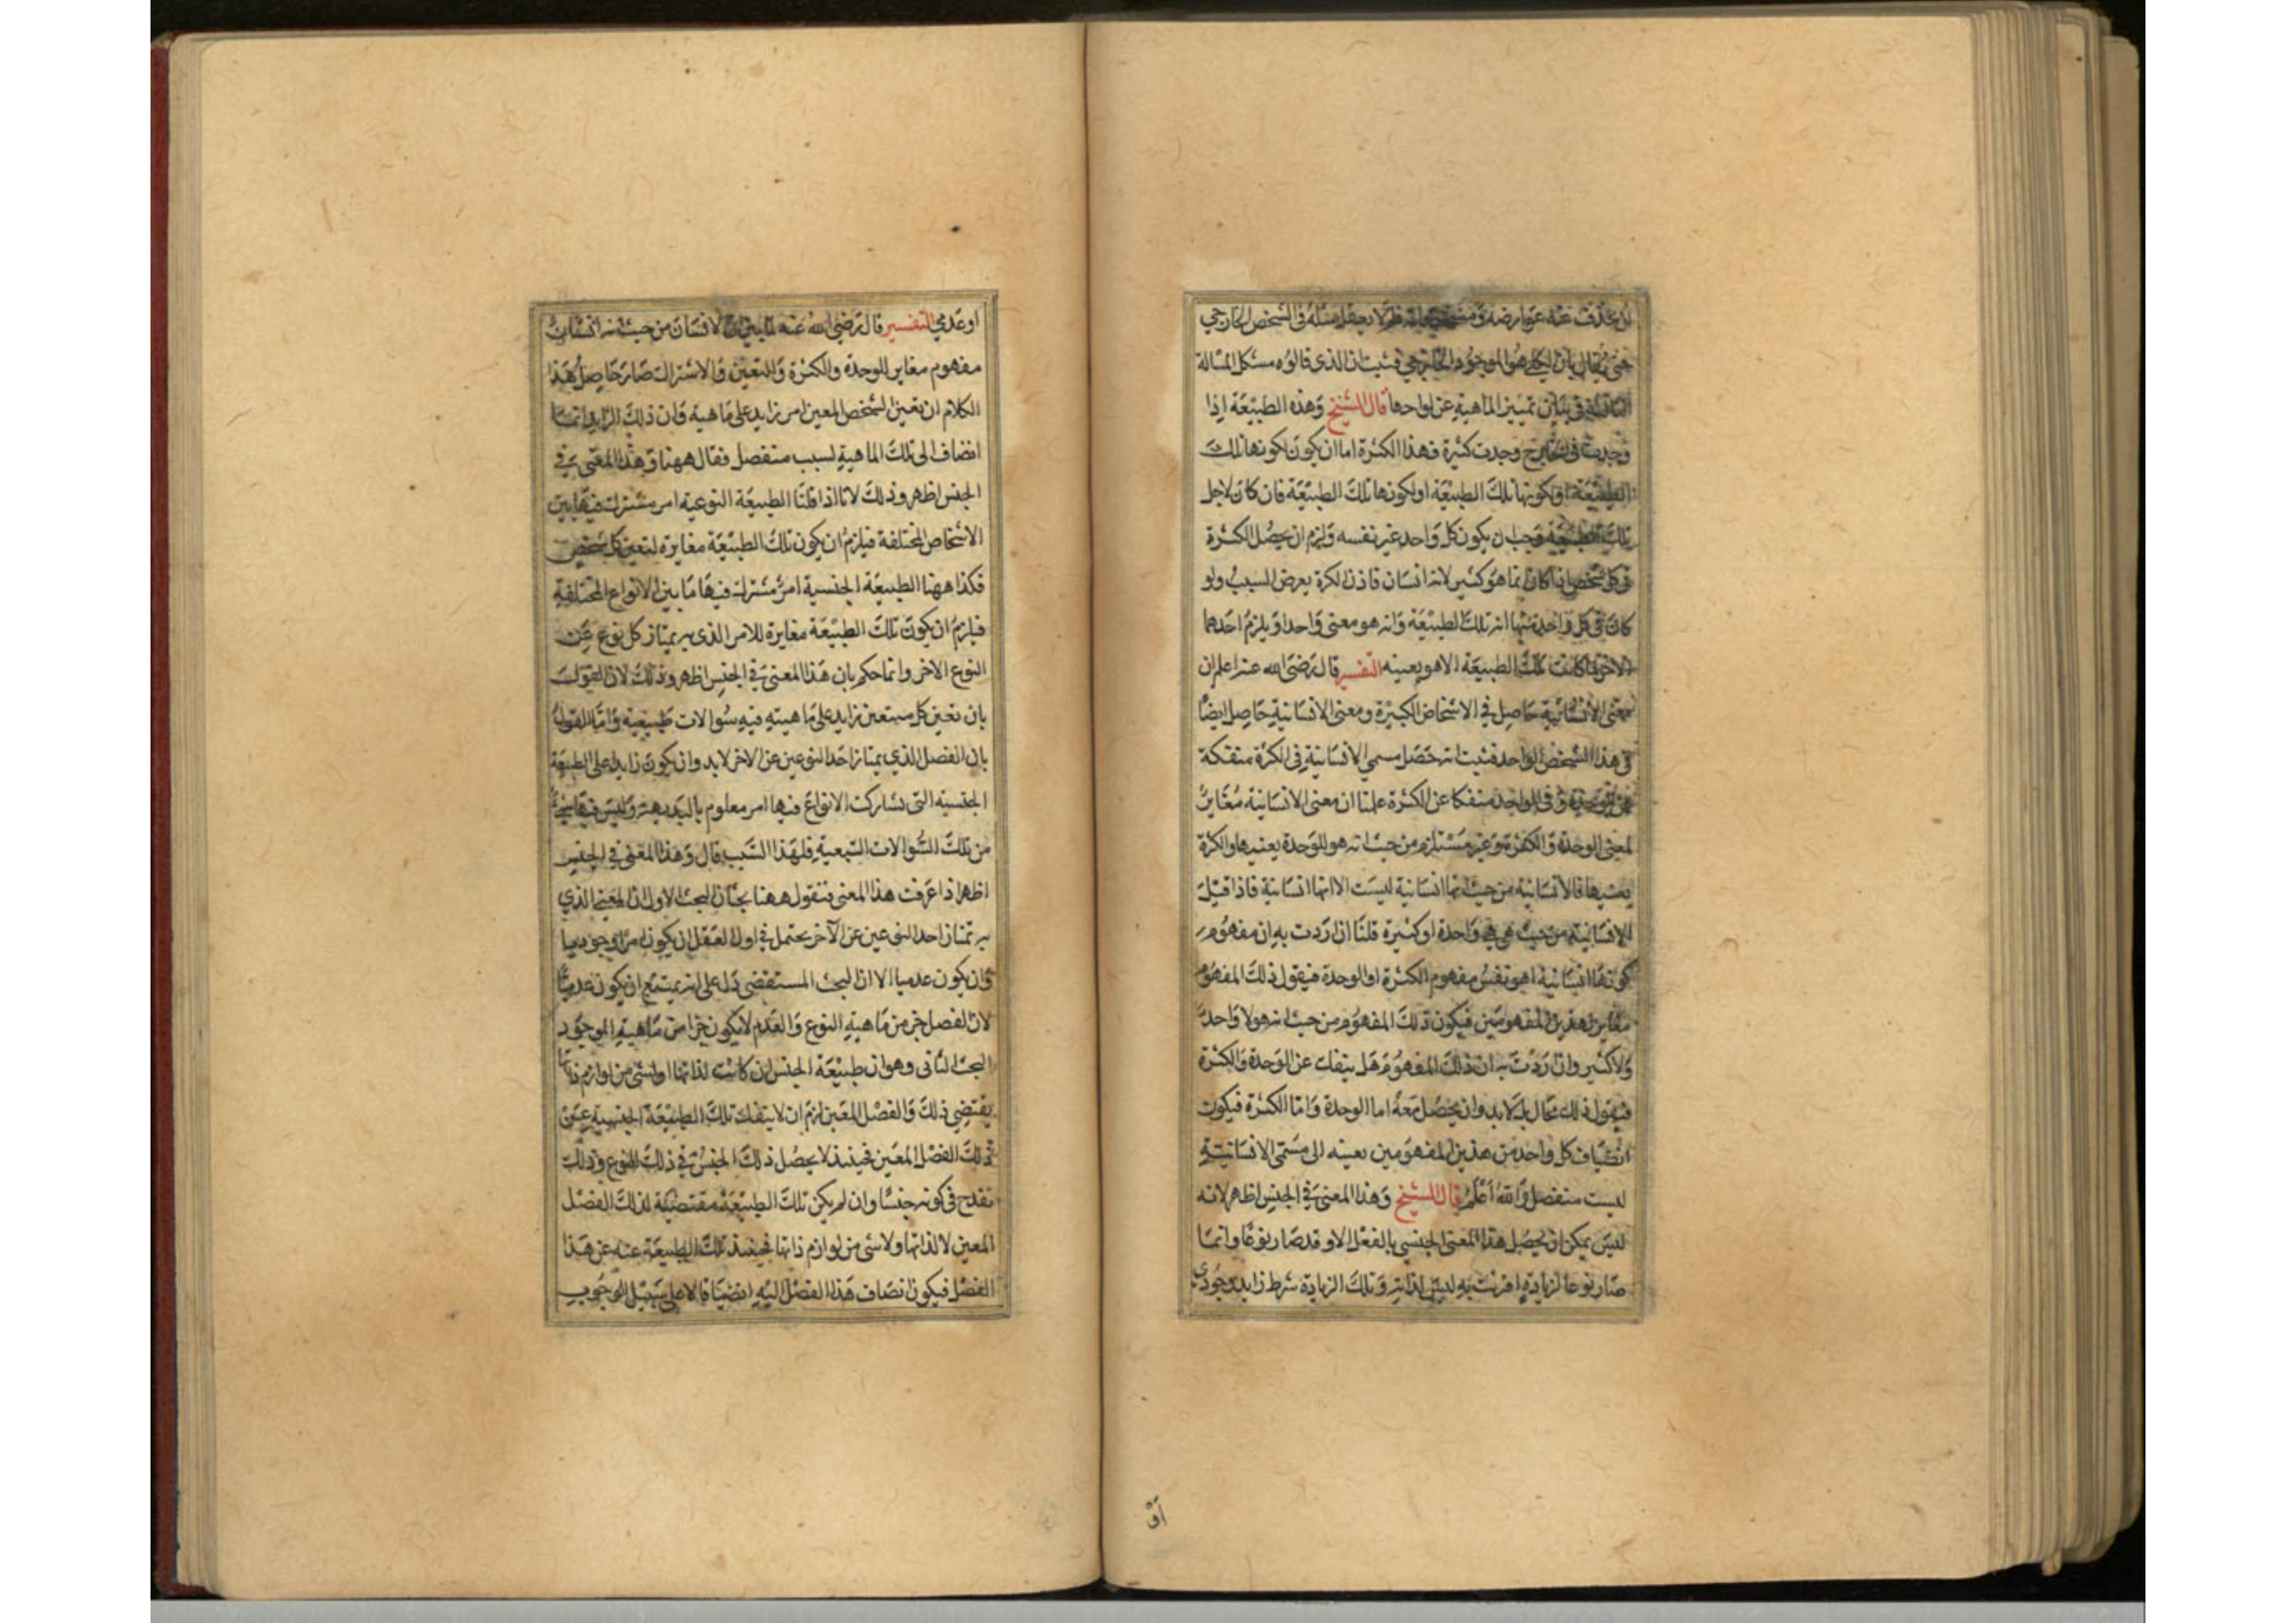 بان يحذف عنه عوارضه ومشخصاته فلم لا يعقل مثله فى الشخص الخارجي
حتى يقال بان الكلى هو الموجود الخارجي فثبت ان الذى قالوه مشكل المسالة
الثالثة فى بيان تمييز الماهية عن لواحقها قال الشيخ وهذه الطبيعة اذا
وجدت فى الخارج وجدت كثيرة فهذا الكثرة اما ان يكون لكونها تلك
الطبيعة او لكونها تلك الطبيعة او لكونها تلك الطبيعة فان كان لاجل
تلك الطبيعة وجب ان يكون كل واحد غير نفسه ولزم ان يحصل الكثرة
فى كل شخص اذا كان انما هو كثير لانه انسان فاذن الكرة يعرض لسبب ولو
كان فى كل واحد منها انه تلك الطبيعة وانه هو معنى واحدا ويلزم احدهما
الاخر لما كانت تلك الطبيعة الا هو بعينه التفسير قال رضى الله عنه اعلم ان
معنى الانسانية حاصل في الاشخاص الكبيرة ومعنى الانسانية حاصل ايضا
فى هذا الشخص الواحد فثبت انه حصل مسمى الانسانية فى الكرة منفكة
عن الوحدة وفى الواحد منفكا عن الكثرة علمنا ان معنى الانسانية مغاير
لمعنى الوحدة والكثرة وغير مستلزم من حيث انه هو للوحدة بعينها والكرة
بعينها فالانسانية من حيث انها انسانية ليست الا انها انسانية فاذا قيل
الانسانية من حيث هي هي واحدة او كثيرة قلنا ان اردت به ان مفهوم
كونها انسانية اهو نفس مفهوم الكثرة او الوحدة فيقول ذلك المفهوم
مغاير لهذين المفهومين فيكون ذلك المفهوم من حيث انه هو لا واحد
ولا كثير وان اردت به ان ذلك المفهوم هل ينفك عن الوحدة والكثرة
فيقول ذلك محال بل لا بد وان يحصل معه اما الوحدة واما الكثرة فيكون
انضياف كل واحد من هذين المفهومين بعينه الى مسمى الانسانية
ليست منفصل والله اعلم قال الشيخ وهذا المعنى في الجنس اظهر لانه
ليس يمكن ان يحصل هذا المعنى الجنسي بالفعل الا وقد صار نوعا وانما
صار نوعا لزيادة اقرنت به ليس لذاته وتلك الزيادة شرط زايد وجودى
او
او عدمي التفسير قال رضى الله عنه لما بين ان الانسان من حيث انه انسان
مفهوم مغاير للوحدة والكثرة والتعين والاشتراك صار حاصل هذا
الكلام ان تعين الشخص المعين امر زايد على ماهيه وان ذلك الزايد انما
انضاف الى تلك الماهية لسبب منفصل فقال ههنا وهذا المعنى في
الجنس اظهر وذلك لانا اذا قلنا الطبيعة النوعيه امر مشترك فيها بين
الاشخاص المختلفة فيلزم ان يكون تلك الطبيعة مغايرة لتعين كل شخص
فكذا ههنا الطبيعة الجنسية امر مشترك فيها ما بين الانواع المختلفة
فيلزم ان يكون تلك الطبيعة مغايرة للامر الذى به يمتاز كل نوع عن
النوع الاخر وانما حكم بان هذا المعنى في الجنس اظهر وذلك لان القول
بان تعين كل متعين زايد على ماهيته فيه سوالات طبيعية واما القول
بان الفصل الذي يمتاز احد النوعين عن الاخر لا بد وان يكون زايدا على الطبيعة
الجنسيه التى تشاركت الانواع فيها امر معلوم بالبديهة وليس فيها شئ
من تلك السوالات الشبعية فلهذا السبب قال وهذا المعنى في الجنس
اظهر اذا عرفت هذا المعنى فنقول ههنا بحثان البحث الاول ان المعنى الذي
به تمتاز احد النوعين عن الآخر يحتمل في اول العقل ان يكون امرا وجوديا
وان يكون عدميا الا ان البحث المستقضى دل على انه يمتنع ان يكون عدميا
لان الفصل جزء من ماهية النوع والعدم لا يكون جزا من ماهية الموجود
البحث الثانى وهو ان طبيعة الجنس ان كانت لذاتها او لشئ من لوازم ذاتها
يقتضى ذلك والفصل المعين لزم ان لا ينفك تلك الطبيعة الجنسية عن
ذلك الفصل المعين فحينئذ لا يحصل ذلك الجنس في ذلك النوع وذلك
نقدح فى كونه جنسا وان لم يكن تلك الطبيعة مقتضية لذلك الفصل
المعين لا لذاتها ولا شئ من لوازم ذاتها فحينئذ تلك الطبيعة عنه عن هذا
الفصل فيكون انضاف هذا الفصل اليه انضيافا لا على سبيل الوجوب